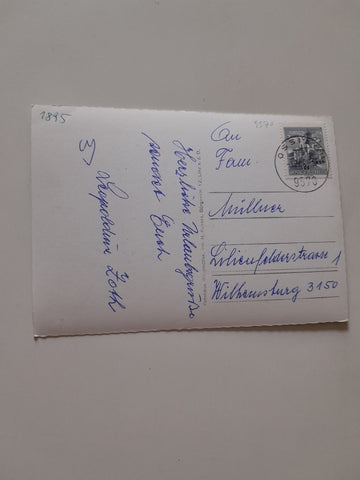 1895
Herzliche Urlaubsgrüße
sendet Euch
Leopoldine Zoth
9570
An
Fam.
Müllner
Lilienfelderstrasse 1
Wilhelmsburg 3150
9570